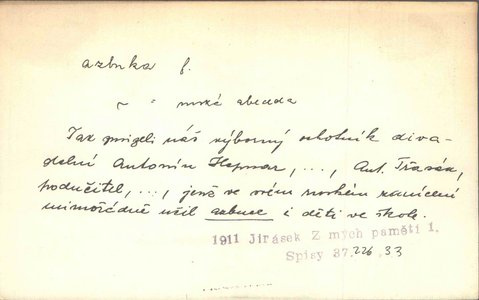 azbuka f.
~ " ruská abeceda
Tak zmizeli náš výborný ochotník diva-
delní Antonín Hejnar, ..., Ant. Třasák,
podučitel, ..., jenž ve svém ruském zanícení
mimořádně učil azbuce i děti ve škole.
1911 Jirásek Z mých pamětí 1.
Spisy 37. 226, 33